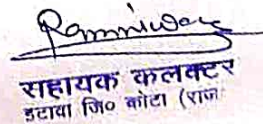 Ramniwas
सहायक कलक्टर
इटावा जि० कोटा (राज०